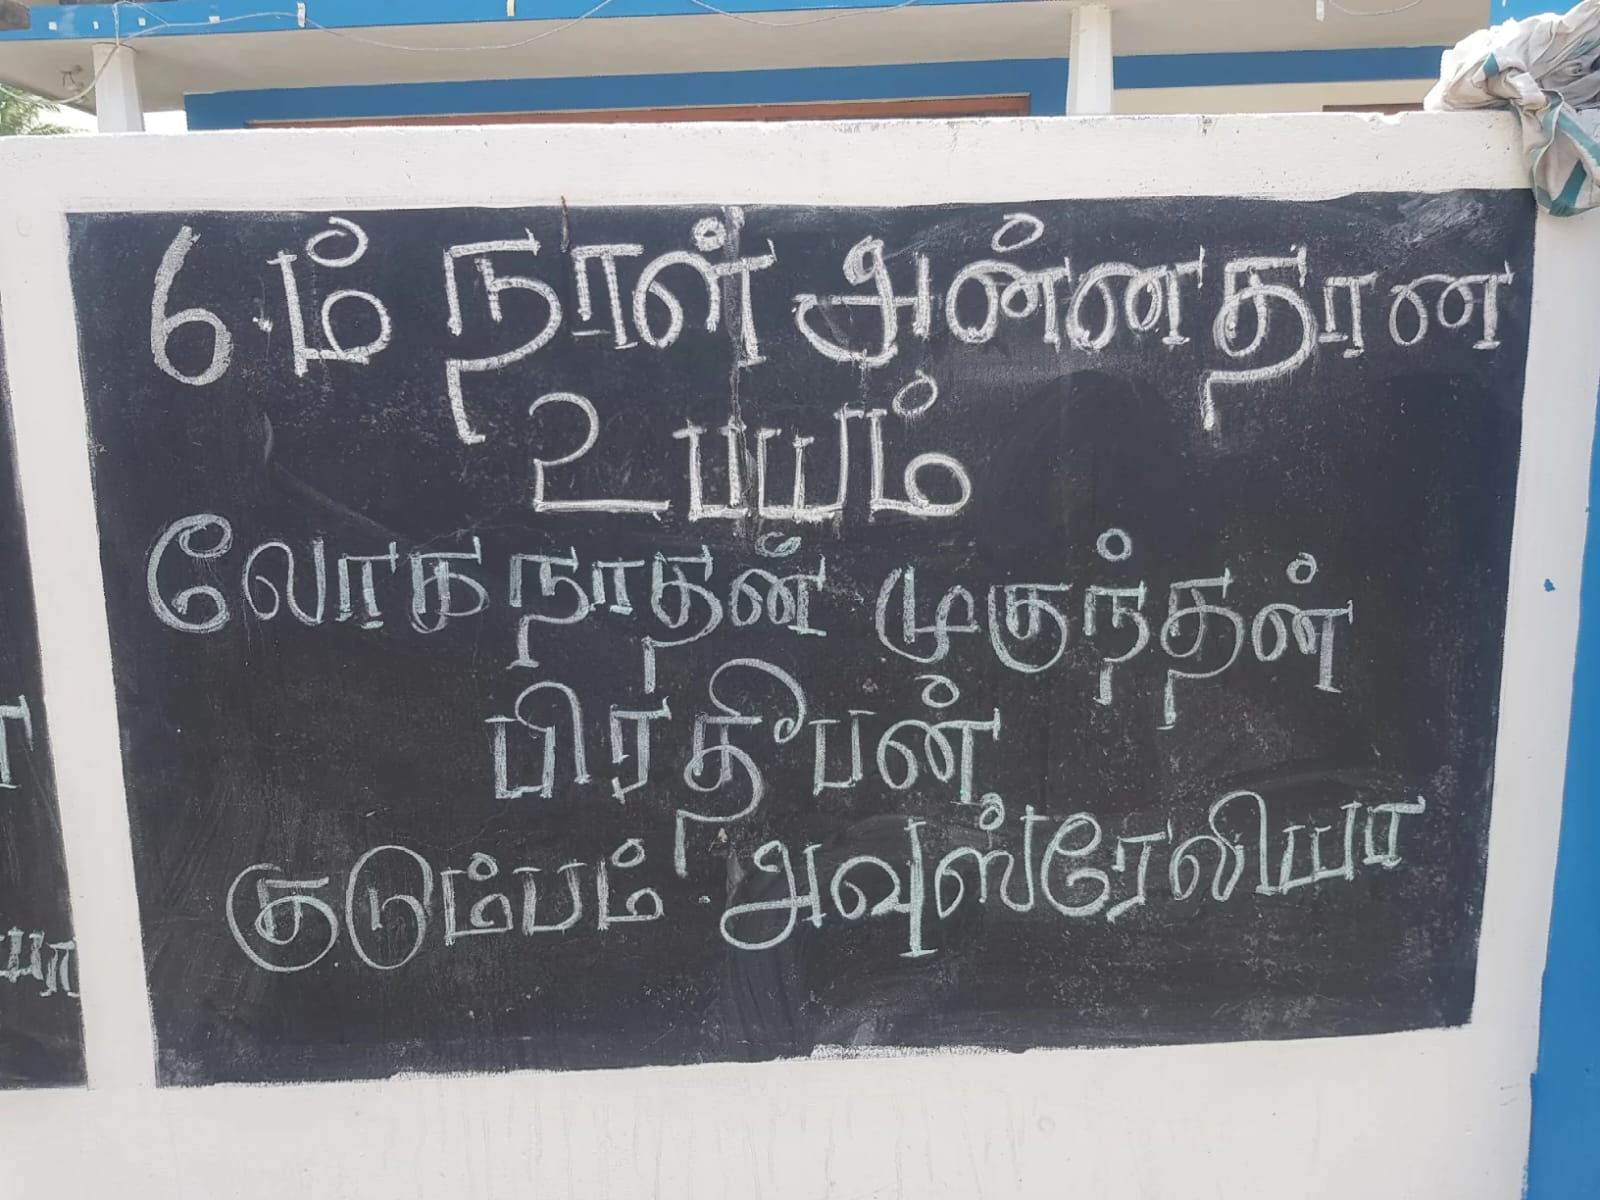 6.ம் நாள் அன்னதான
உபயம்
லோகநாதன் முகுந்தன்
பிரதீபன்
குடும்பம். அவுஸ்ரேலியா